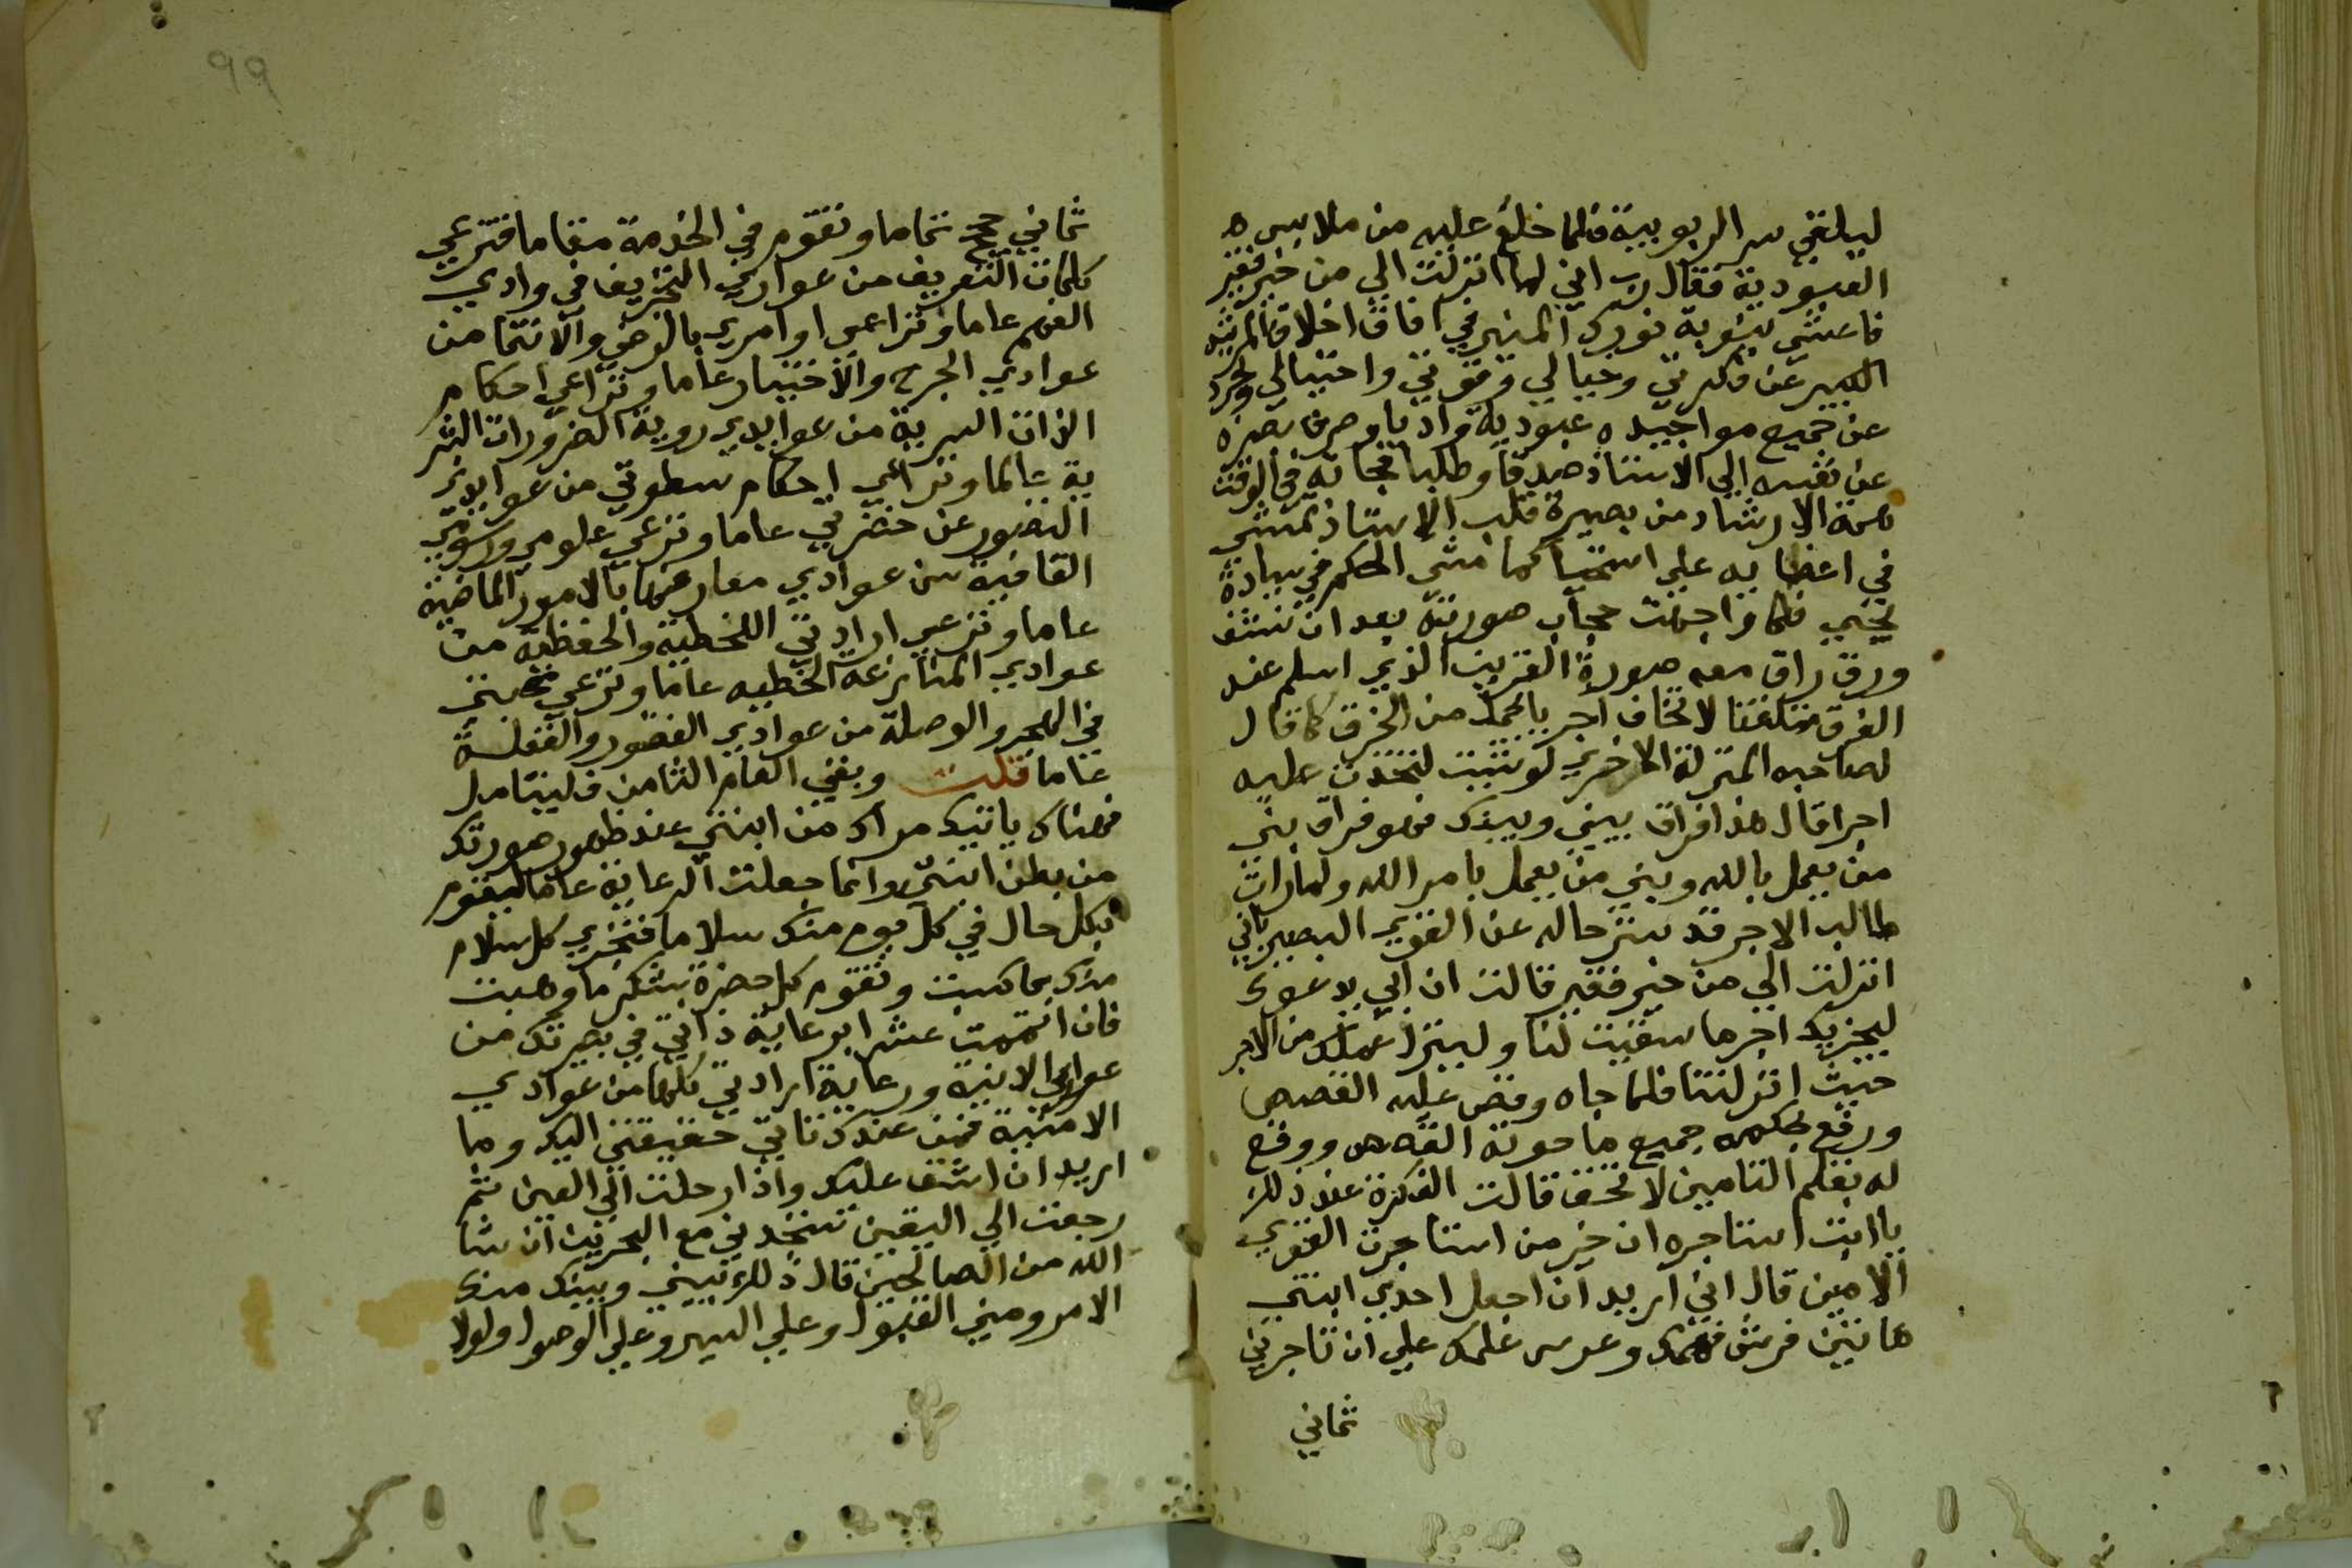 ليلقي سر الربوبية فلما خلع عليه من ملابس
العبودية فقال رب اني لما انزلت الي من خير فقير
فاعشي بشرية نورك المنير في افاق اخلاق المرشد
الكبير عن فكرتي وخيالي وقوتي واحتيالي وتجرد
عن جميع مواجيده عبودية وادبا وصرف بصره
عن نفسه الي الاستاذ صدقا وطلبا فجاته في الوقت
همة الارشاد من بصيرة قلب الاستاذ تمشي
في اعضايه علي استحيا كما مشي الحكم في سيادة
يحيي فلما واجهت حجاب صورته بعد ان نشف
ورق راق معه صورة القرين الذي اسلم عند
الفرق لا تخاف اجر بالحمد من الخرق كما قال
لصاحبه المنزلة الاخري لو شيت لتخذت عليه
اجرا قال هذا فراق بيني وبينك فهو فراق بين
من يعمل بالله وبين من يعمل بامر الله ولما رات
طالب الاجر قد ستر حاله عن القوي البصير باني
انزلت الي من خير فقير قالت ان ابي يدعوك
ليجزيك اجر ما سقيت لنا ولينزل عملك من الاجر
حيث انزلتنا فلما جاه وقص عليه القصص
ورفع بحكمه جميع ما حوته القصص ووقع
له بقلم التامين لا تخف قالت الفكرة عند ذلك
يا ابت استاجره ان خير من استاجرت القوي
الامين قال اني اريد ان احعل احدي ابنتي
هاتين فرش فهمك وعرس علمك علي ان تاجرني
ثماني
99
ثماني حجج تماما وتقوم في الخدمة مقاما فترعي
كلمات التعريف من عوادي التحريف في وادي
الفهم عاما وتراعي اوامري بالرضي والانتما من
عوادي الجرح والاختبار عاما وتراعي احكام
الذات السرية من عوايدي روية الضرورات البشر
ية عالما وتراعي احكام سطوتي من عوايدي
القصور عن حضرتي عاما وترعي علومي ورسومي
القافية من عوادي معارضها بالامور الماضية
عاما وترعي ارادتي اللحظية والحفظية من
عوادي المنازعة الخطيه عاما وترعي محبتي
في الهجر والوصلة من عوادي القصور والغفلة
عاما قلت وبقي العام الثامن فليتامل
فهناك ياتيك مرادك من ابنتي عند ظهور صورتك
من بطن ابنتي وانما جعلت الرعاية عاما ليقوم
بكل حال في كل يوم منك سلاما فتجزي كل سلام
منك بما كسبت وتقوم كل حضرة بشكر ما وهبت
فان اتممت عشرا برعاية ذاتي في بصيرتك من
عوادي الاينية ورعاية ارادتي كلها من عوادي
الامنية فمن عندك تاتي حقيقتي اليك وما
اريد ان اشق عليك واذا رحلت الي العين ثم
رجعت الي اليقين ستجدني مع البحرين ان شا
الله من الصالحين قال ذلك بيني وبينك منك
الامر ومني القبول وعلي السير وعلي الوصول ولولا